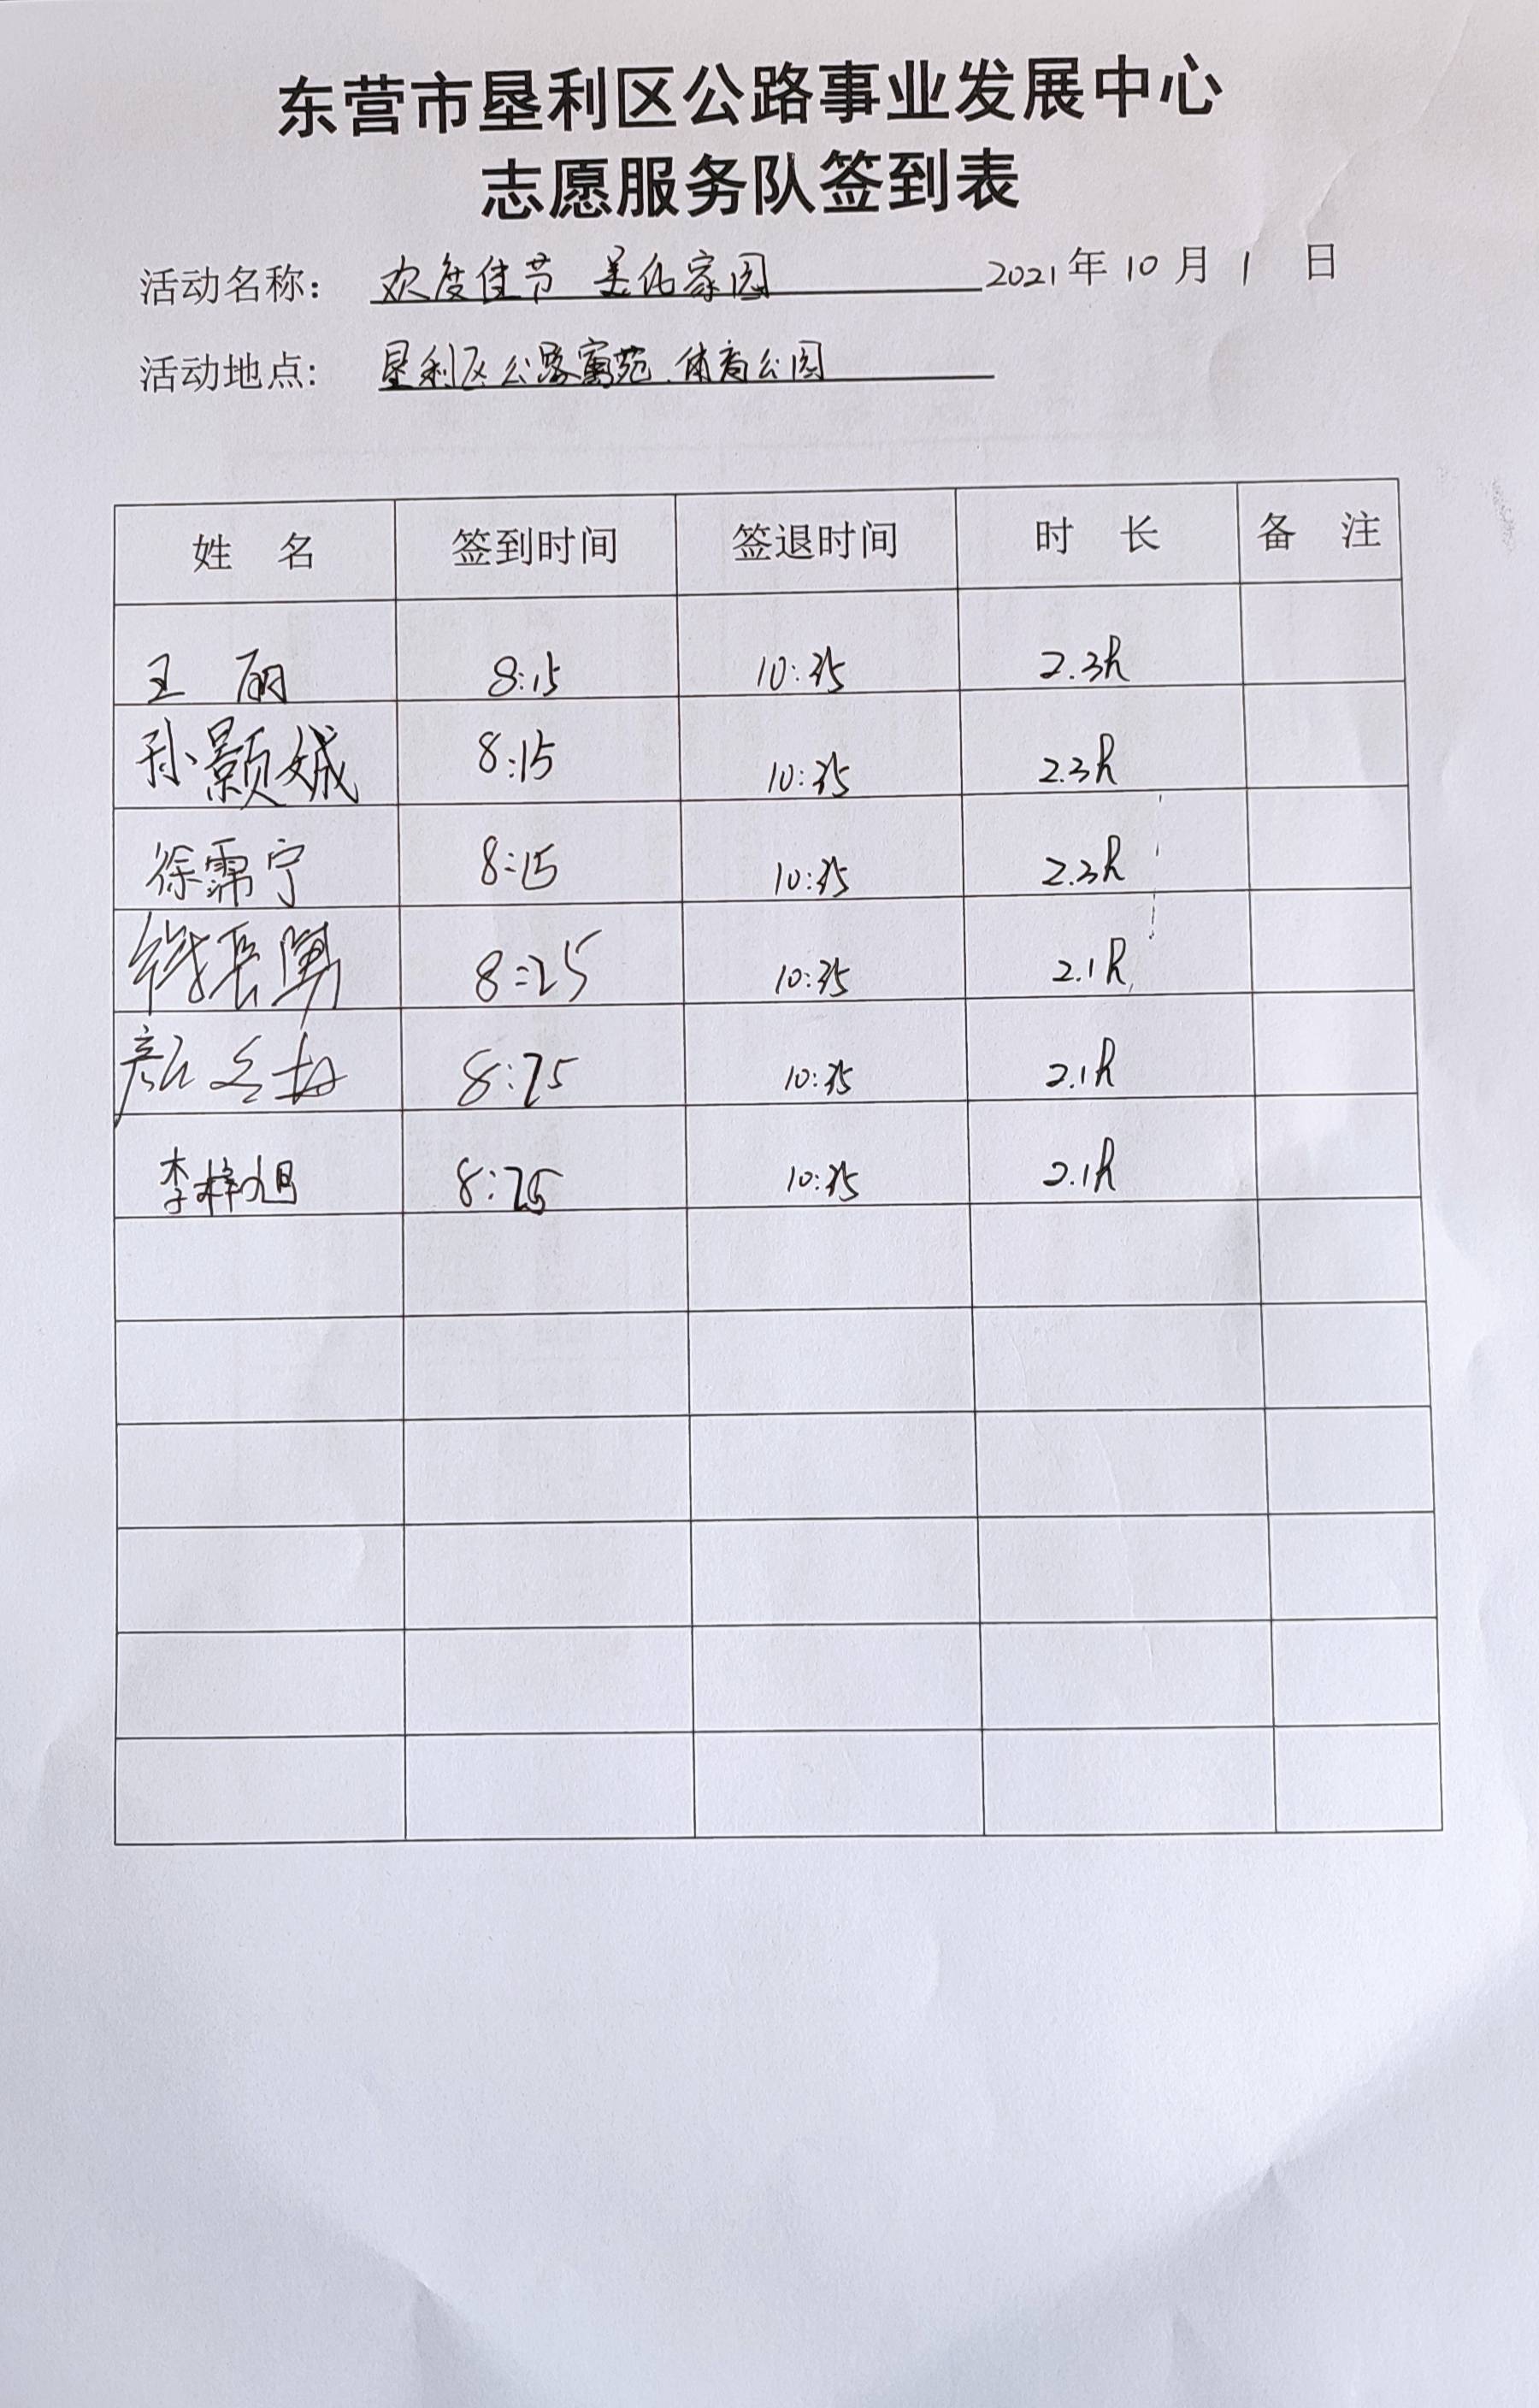 东营市垦利区公路事业发展中心
志愿服务队签到表
活动名称： 欢度佳节 美化家园 2021年10月1日
活动地点: 垦利区公路寓苑、体育公园
姓 名 签到时间 签退时间 时 长 备 注
王 丽 8:15 10:35 2.3h
孙颢娍 8:15 10:35 2.3h
徐霈宁 8:15 10:35 2.3h
8:25 10:35 2.1h
8:25 10:35 2.1h
李梓旭 8:25 10:35 2.1h